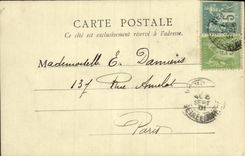 CARTE POSTALE
Ce côté est exclusivement réservé à l'adresse.
Mademoiselle E. Damiens
137 Rue Amelot
Paris
SEPT